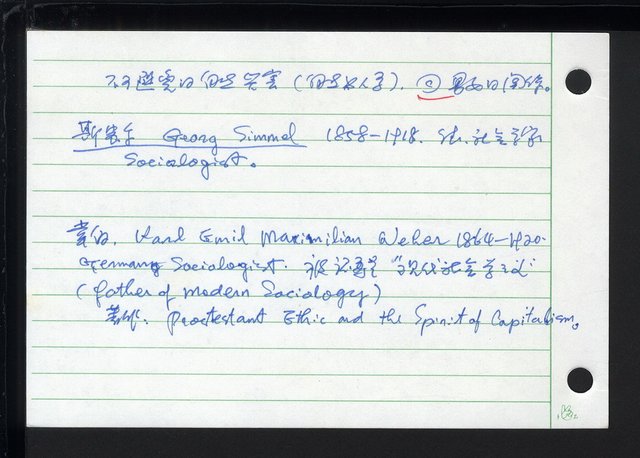 不可避免的自然災害 ( 自然和人手 ) . ② 男女的関係。
Georg Simmel 1858-1918. 社會学家
Sociologist。
韋伯. Karl Emil Maximilian Weber 1864-1920.
Germany Sociologist. 被認爲是 "現代社會学之父"
( father of modern Sociology )
著作. Protestant Ethic and the Spirit of Capitalism。